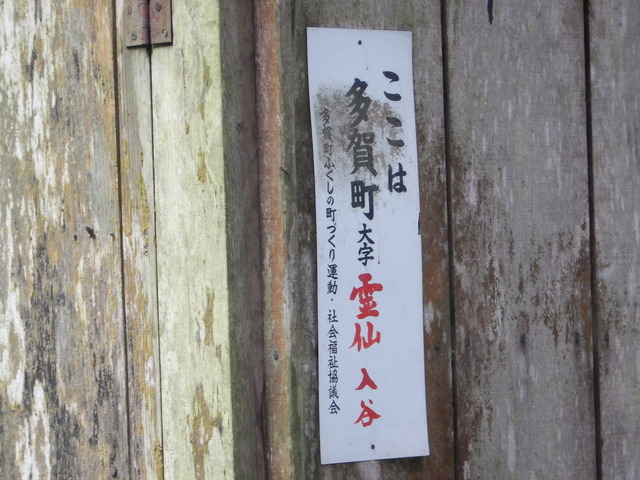 ここは
多賀町大字霊仙入谷
多賀町ふくしの町づくり運動・社会福祉協議会